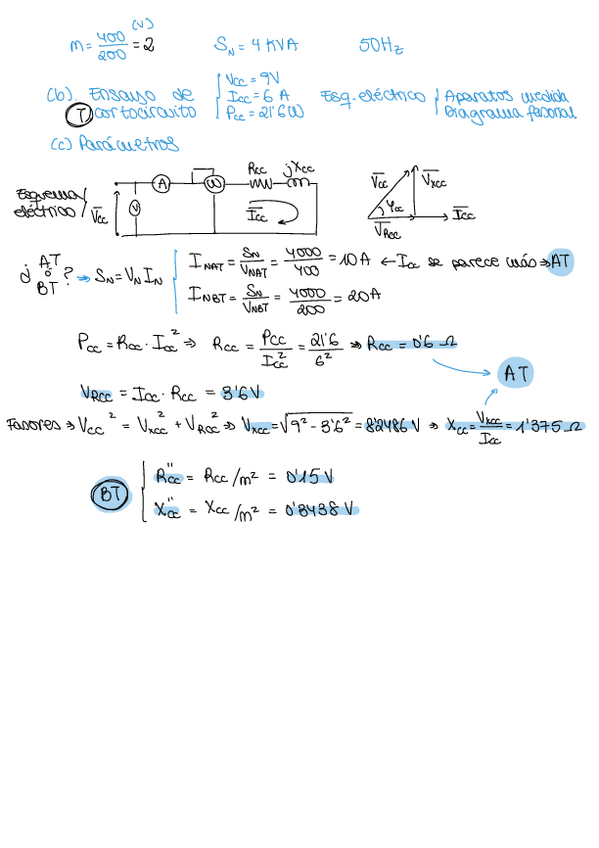 (V)
m = 400/200 = 2 S_N = 4 KVA 50Hz
(b). Ensayo de cortocircuito (T) { Vcc = 9V Icc = 6 A Pcc = 21'6 W Esq. eléctrico { Aparatos medida Diagrama fasorial
(c) Parámetros
Esquema eléctrico / V̅cc V A W Rcc jXcc I̅cc V̅cc V̅xcc φcc V̅Rcc I̅cc
¿ AT ó BT ? → S_N = V_N I_N { I_NAT = S_N/V_NAT = 4000/400 = 10 A ← Icc se parece más → AT
I_NBT = S_N/V_NBT = 4000/200 = 20 A
Pcc = Rcc · Icc² ⇒ Rcc = Pcc/Icc² = 21'6/6² ⇒ Rcc = 0'6 Ω
AT
V_Rcc = Icc · Rcc = 3'6 V
Fasores → Vcc² = Vxcc² + V_Rcc² ⇒ Vxcc = √9² - 3'6² = 8'2486 V ⇒ Xcc = Vxcc/Icc = 1'375 Ω
BT { Rcc'' = Rcc/m² = 0'15 V
Xcc'' = Xcc/m² = 0'3438 V